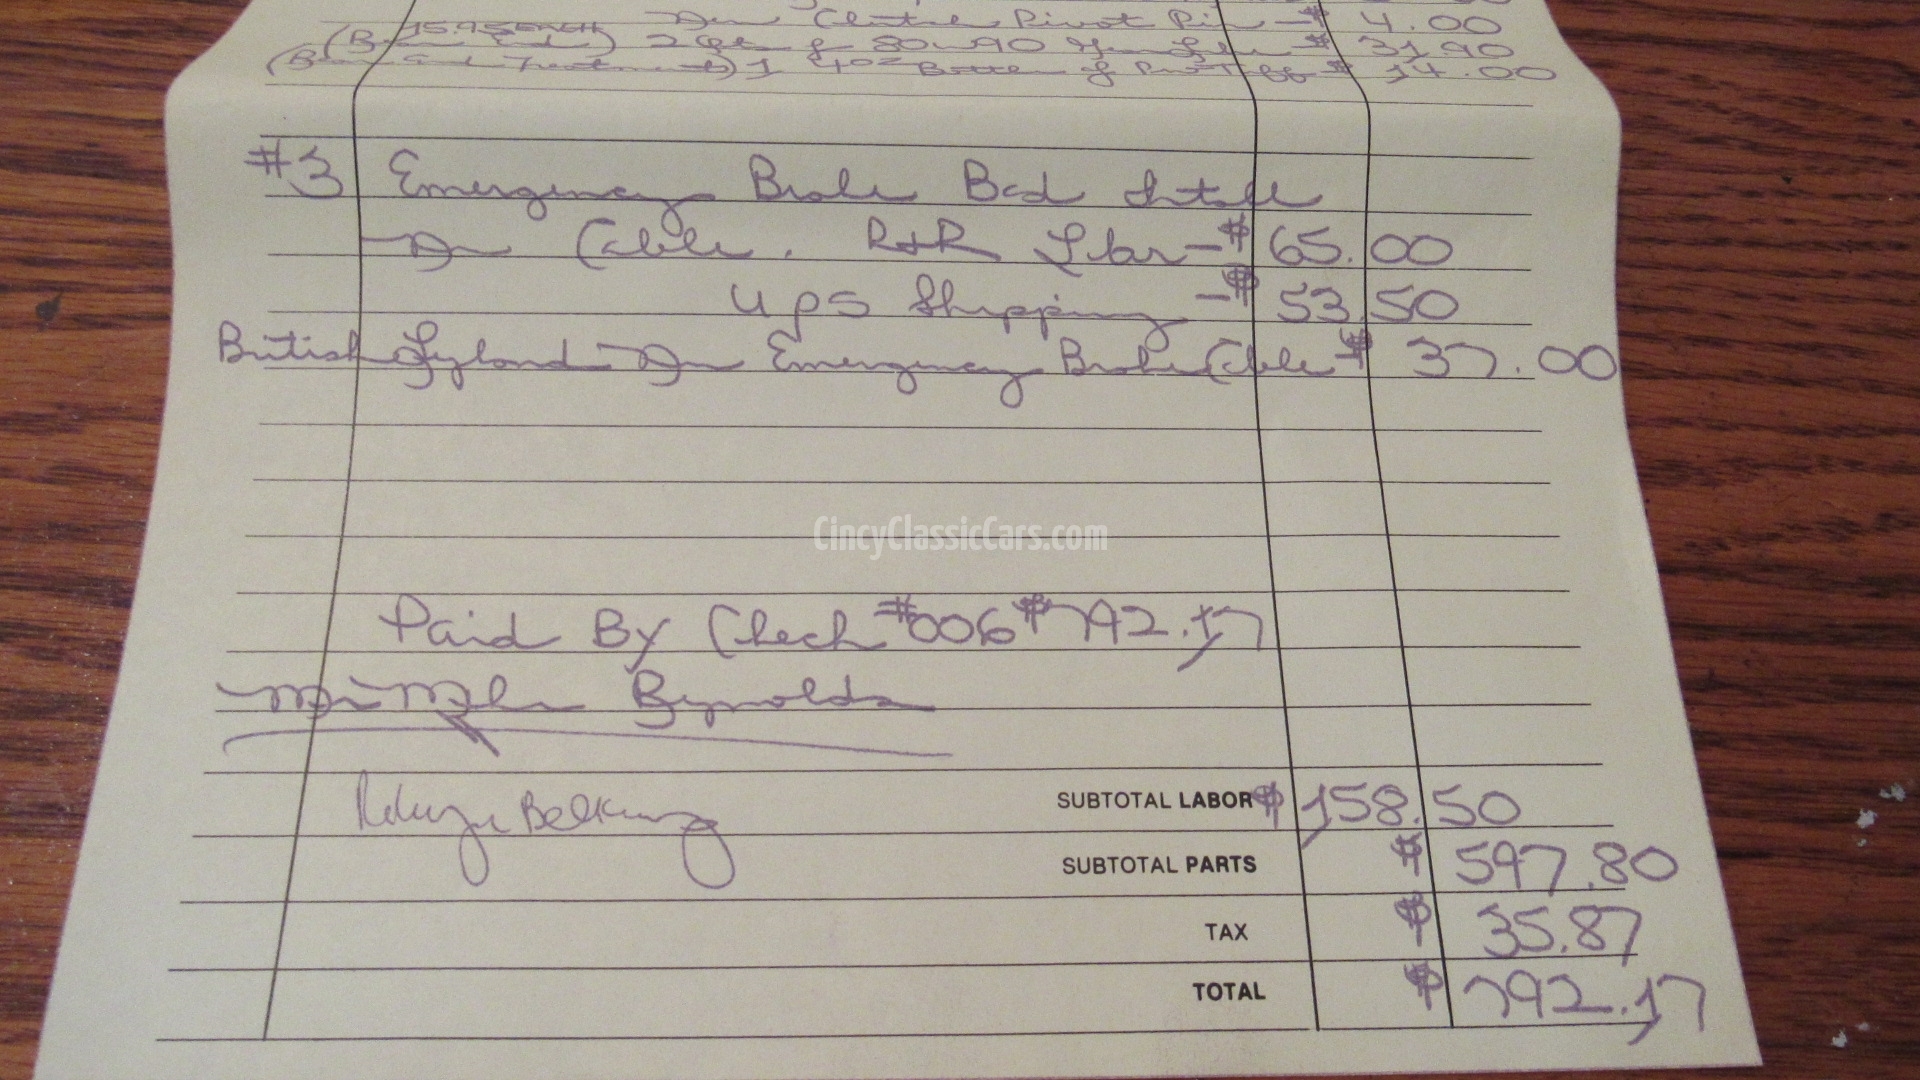 New Clutch Pivot Pin - $ 4.00
(15.95 Each
(Rear End) 2 Qts of 80w90 Gear Lube - $ 31.90
(Rear End Treatment) 1 4oz Bottle of $ 14.00
#3 Emergency Brake Bad Intall
New Cable. R+R Lbar - $ 65.00
UPS Shipping - $ 53.50
British Leyland New Emergency Brake Cable $ 37.00
CincyClassicCars.com
Paid By Check #006 $792.17
Reynolds
SUBTOTAL LABOR $ 158.50
SUBTOTAL PARTS $ 597.80
TAX $ 35.87
TOTAL $ 792.17